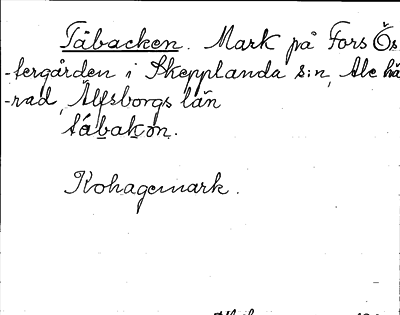 Täbacken. Mark på Fors Ös
-tergården i Skepplanda s:n, Ale hä
-rad, Älfsborgs län
tábakọn.
Kohagemark.